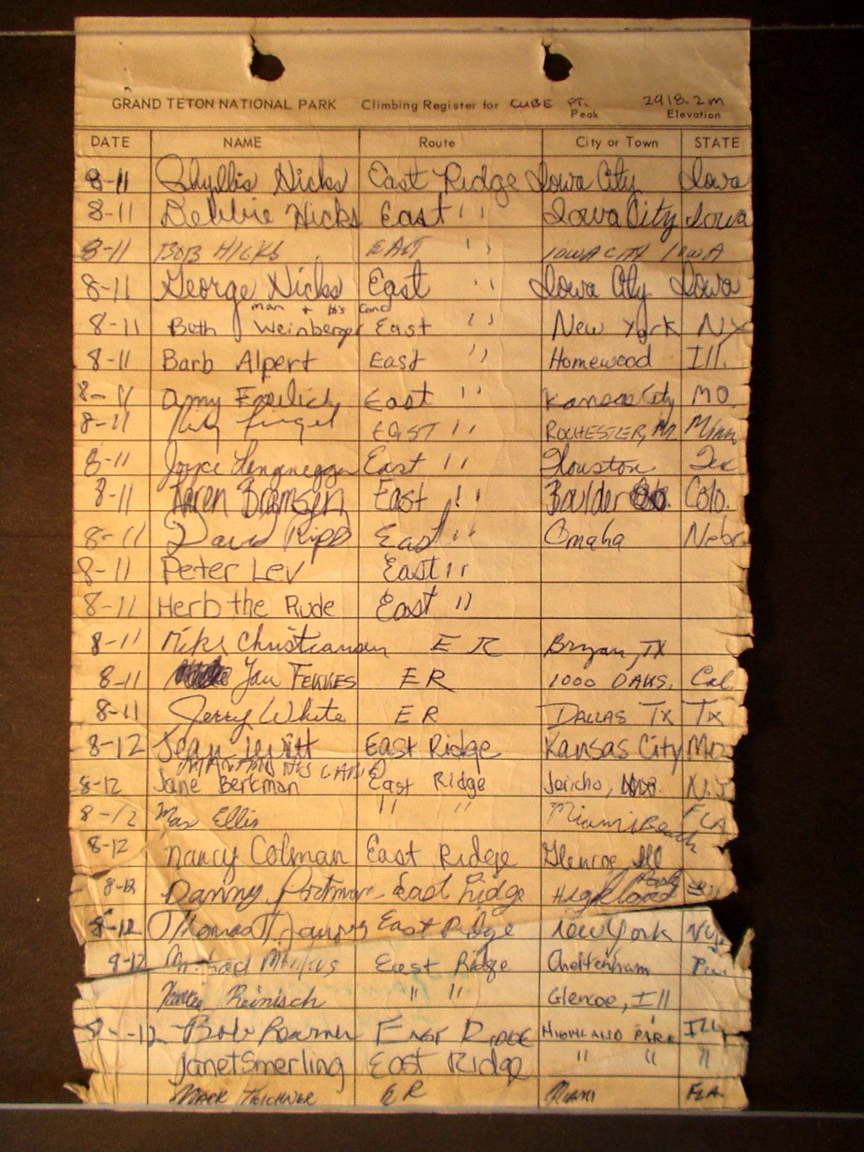 GRAND TETON NATIONAL PARK Climbing Register for CUBE PT. 2918.2m
Peak Elevation
DATE NAME Route City or Town STATE
8-11 Phyllis Hicks East Ridge Iowa City Iowa
8-11 Debbie Hicks East '' Iowa City Iowa
8-11 BOB HICKS EAST '' IOWA CITY IOWA
8-11 George Hicks East '' Iowa City Iowa
man + his
8-11 Beth Weinberger East '' New York NY
8-11 Barb Alpert East '' Homewood Ill.
8-11 Amy East '' Kansas City MO.
8-11 EAST '' ROCHESTER, Minn
8-11 Joyce East '' Houston Tex
8-11 Karen Bramsen East '' Boulder Colo.
8-11 David East '' Omaha Nebr
8-11 Peter Lev East ''
8-11 Herb the Rude East ''
8-11 Mike Christiansen E R Bryan, TX
8-11 Jan FEKKES ER 1000 OAKS, Cal
8-11 Jerry White ER DALLAS TX TX
8-12 Jean East Ridge Kansas City Mo
MAN AND HIS
8-12 Jane Berkman East Ridge Jericho, N.Y
8-12 Max Ellis '' '' Miami Beach FLA
8-12 Nancy Colman East Ridge Glencoe Ill
8-12 Danny East Ridge Highland Park
8-12 Thomas East Ridge New York NY
8-12 Michael East Ridge Cheltenham
Reinisch '' '' Glencoe, Ill
8-12 Bob East RIDGE HIGHLAND PARK ILL
Janet Smerling East Ridge '' '' ''
MARK ER MIAMI FLA.